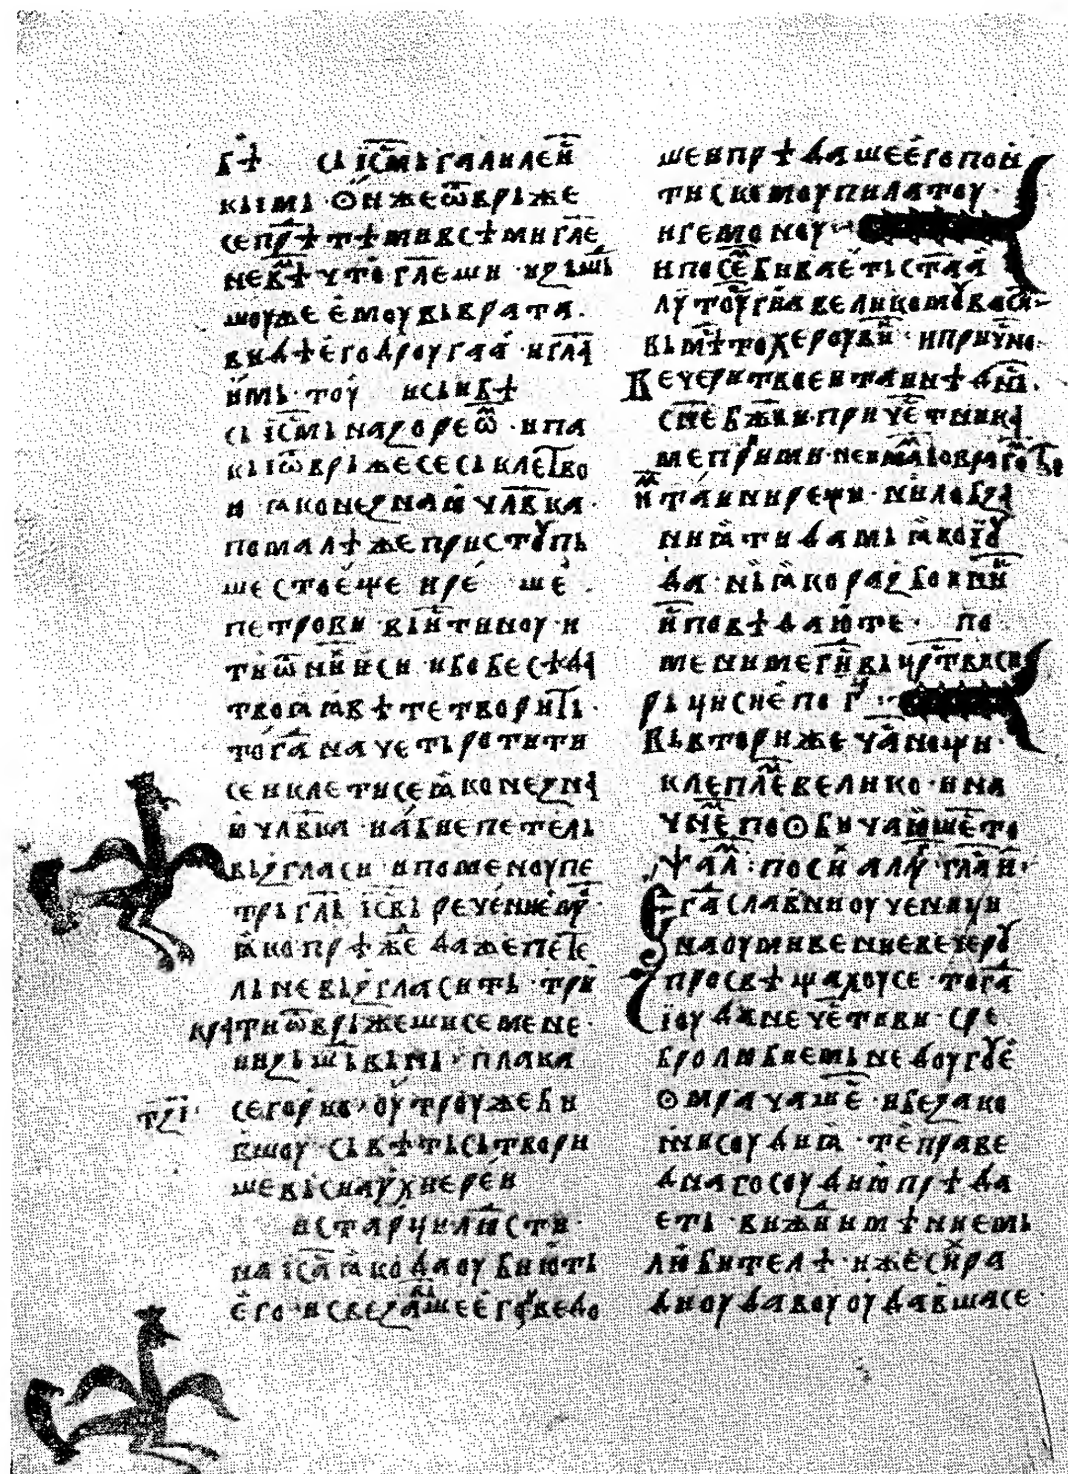 бѣ сь їс҃мь галилеи҃
кыимь · ѻн же ѿврьже
се прѣ тѣми всѣми гл҃е
не вѣ что гл҃еши · изьшь
шоуже емоу вь врата ·
видѣ его дроугаа · и гл҃а
имь · тоу и сь и бѣ
сь їс҃мь назорѣѿм · и па
кы ѿврьже се сь клетво
и ꙗко не знаю чл҃вка ·
по малѣ же пристоупь
ше стоеще и ре ше ·
петрови · вь истиноу и
ти ѿ ни҃ еси · ибо бесѣда
твоꙗ ꙗвѣ те творить ·
тога начеть ротити
се и клети се ꙗко не зна
ю чл҃вка · и абие петель
вьзгласи · и поменоу пе
трь гл҃ь їс҃вь реченние моу
ꙗко прѣже даже пете
ль не вьзгласить · три
крати ѿврьжеши се мене ·
и изьшь вьнь · плака
се горко · оутроу же би
вшоу · сьвѣть сьтвори
ше вьси архиереи
и старци людсти ·
на їс҃а ꙗко да оубиють
его · и свезавше его ведо
ше и прѣдаше его пон
тискомоу пилатоу ·
игемоноу ·
и посе бивает ст҃аа
лѵтоургиа великомоу васи
вь мѣто херувии · и прично ·
Вечери твоеи таинѣ дн҃ь ·
сн҃е бж҃ии · причетника
ме прими · не имамь бо врагомь
тайни рещи · ни лобза
ниꙗ ти дамь ꙗко їоу
да · нь ꙗко разбоиник
исповѣдаю те · по
мени ме ги҃ вь црт҃ви си
рьци сне по г
Вь вторы же ча нощи ·
клепле велико · и на
чне по ѻбичаю ше то
ѱал · по си алу гла и ·
Ега славнии оученици
на оумивение вечеру
просвѣщахоу се · тога
їоуда нечестиви · сре
бролюбиемь недоугое
ѻмрачаше · и безако
нни соудиꙗ · те праве
днаго соудию прѣда
еть · вижь имѣниемь
любителѣ · иже сих ра
ди оудавоу оудавша се
трꙁі ·